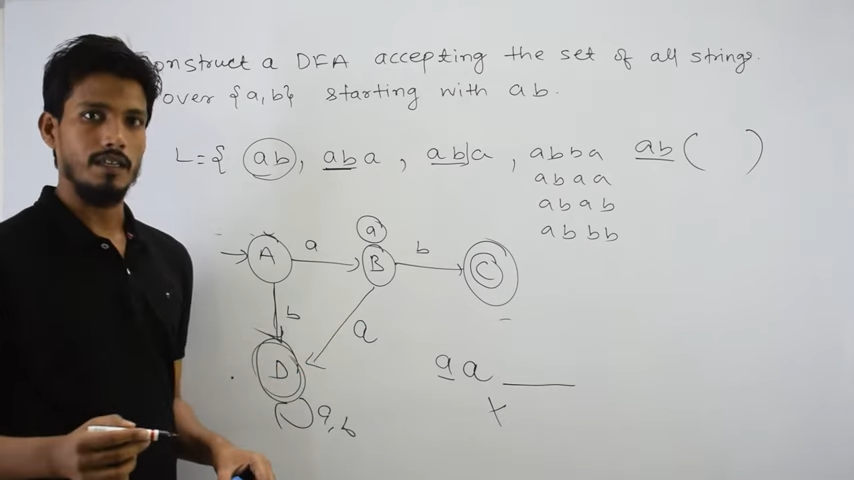 onstruct a DFA accepting the set of all strings.
over {a,b} starting with ab.
L={ ab, aba, ab|a, abba ab( )
abaa
abab
abbb
a
A a B b C
b a
D a a
a,b x